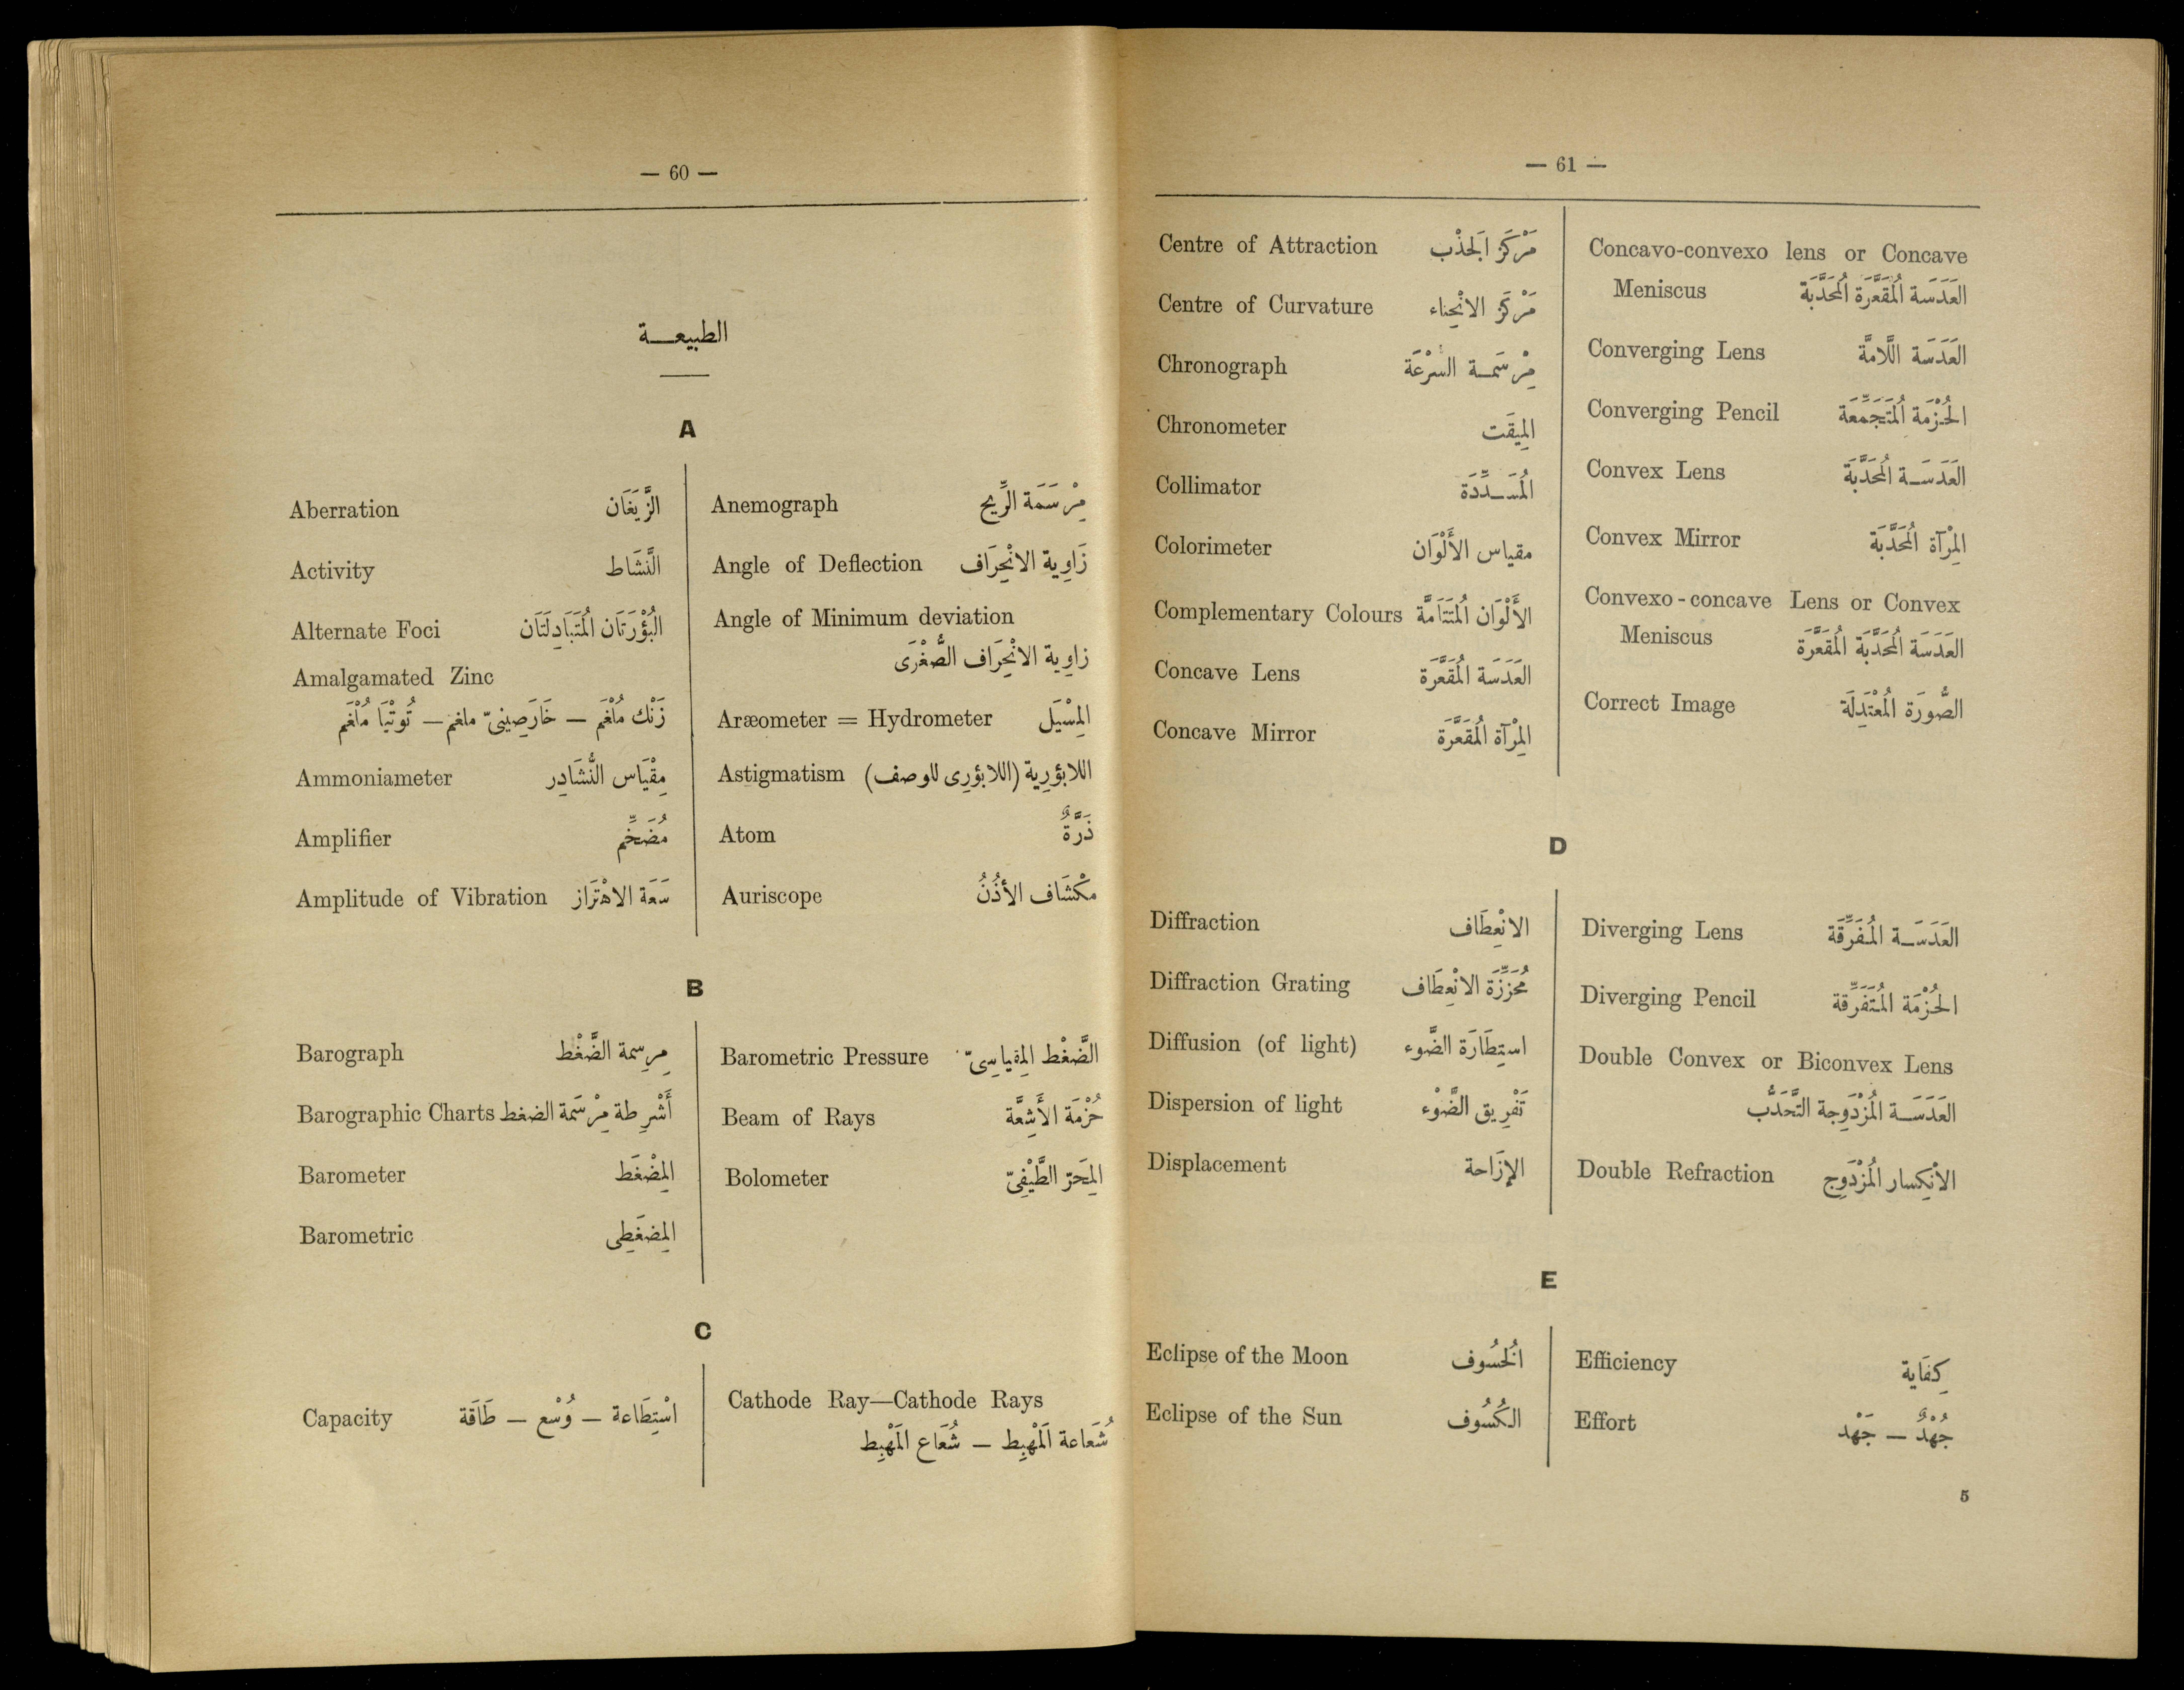 — 60 —
الطبيعــة
A
Aberration الزَّيَغَان
Activity النَّشَاط
Alternate Foci البُؤْرَتَان المُتَبَادِلَتَان
Amalgamated Zinc
زَنْك مُلْغَم — خَارَصِينىّ ملغم — تُوتْيَا مُلْغَم
Ammoniameter مِقْيَاس النُّشَادِر
Amplifier مُضَخِّم
Amplitude of Vibration سَعَة الاهْتَزَاز
Anemograph مِرْسَمَة الرِّيح
Angle of Deflection زَاوِية الانْحِرَاف
Angle of Minimum deviation
زاوِية الانْحِرَاف الصُّغْرَى
Aræometer = Hydrometer المِسْيَل
Astigmatism اللابؤرِية (اللابؤرِى للوصف)
Atom ذَرَّةٌ
Auriscope مكْشَاف الأذُنُ
B
Barograph مِرسِمة الضَّغْط
Barographic Charts أَشْرِطة مِرْسَمة الضغط
Barometer المِضْغَط
Barometric المِضغَطِى
Barometric Pressure الضَّغْط المِقياسِىّ
Beam of Rays حُزْمَة الأَشِعَّة
Bolometer المِحَرّ الطَّيْفِىّ
C
Capacity اسْتِطَاعة — وُسْع — طَاقَة
Cathode Ray—Cathode Rays
شُعَاعة المَهْبِط — شُعَاع المَهْبِط
— 61 —
Centre of Attraction مَرْكَز الجَذْب
Centre of Curvature مَرْكَز الانْحِناء
Chronograph مِرْسَمــة السُّرْعَة
Chronometer المِيقَت
Collimator المُسَــدِّدَة
Colorimeter مقياس الأَلْوَان
Complementary Colours الأَلْوَان المُتَتَامَّة
Concave Lens العَدَسَة المُقَعَّرَة
Concave Mirror المِرْآة المُقَعَّرَة
Concavo-convexo lens or Concave
Meniscus العَدَسَة المُقَعَّرَة المُحَدَّبَة
Converging Lens العَدَسَة اللَّامَّة
Converging Pencil الحُزْمَة المُتَجَمِّعَة
Convex Lens العَدَسَــة المُحَدَّبَة
Convex Mirror المِرْآة المُحَدَّبَة
Convexo-concave Lens or Convex
Meniscus العَدَسَة المُحَدَّبَة المُقَعَّرَة
Correct Image الصُّورَة المُعْتَدِلَة
D
Diffraction الانْعِطَاف
Diffraction Grating مُحَزِّزَة الانْعِطَاف
Diffusion (of light) استِطَارَة الضَّوء
Dispersion of light تَفْرِيق الضَّوْء
Displacement الإزَاحة
Diverging Lens العَدَسَــة المُفَرِّقَة
Diverging Pencil الحُزْمَة المُتَفَرِّقة
Double Convex or Biconvex Lens
العَدَسَــة المُزْدَوِجة التَّحَدُّب
Double Refraction الانْكِسار المُزْدَوِج
E
Eclipse of the Moon الخُسُوف
Eclipse of the Sun الكُسُوف
Efficiency كِفَاية
Effort جُهْدٌ — جَهْد
5